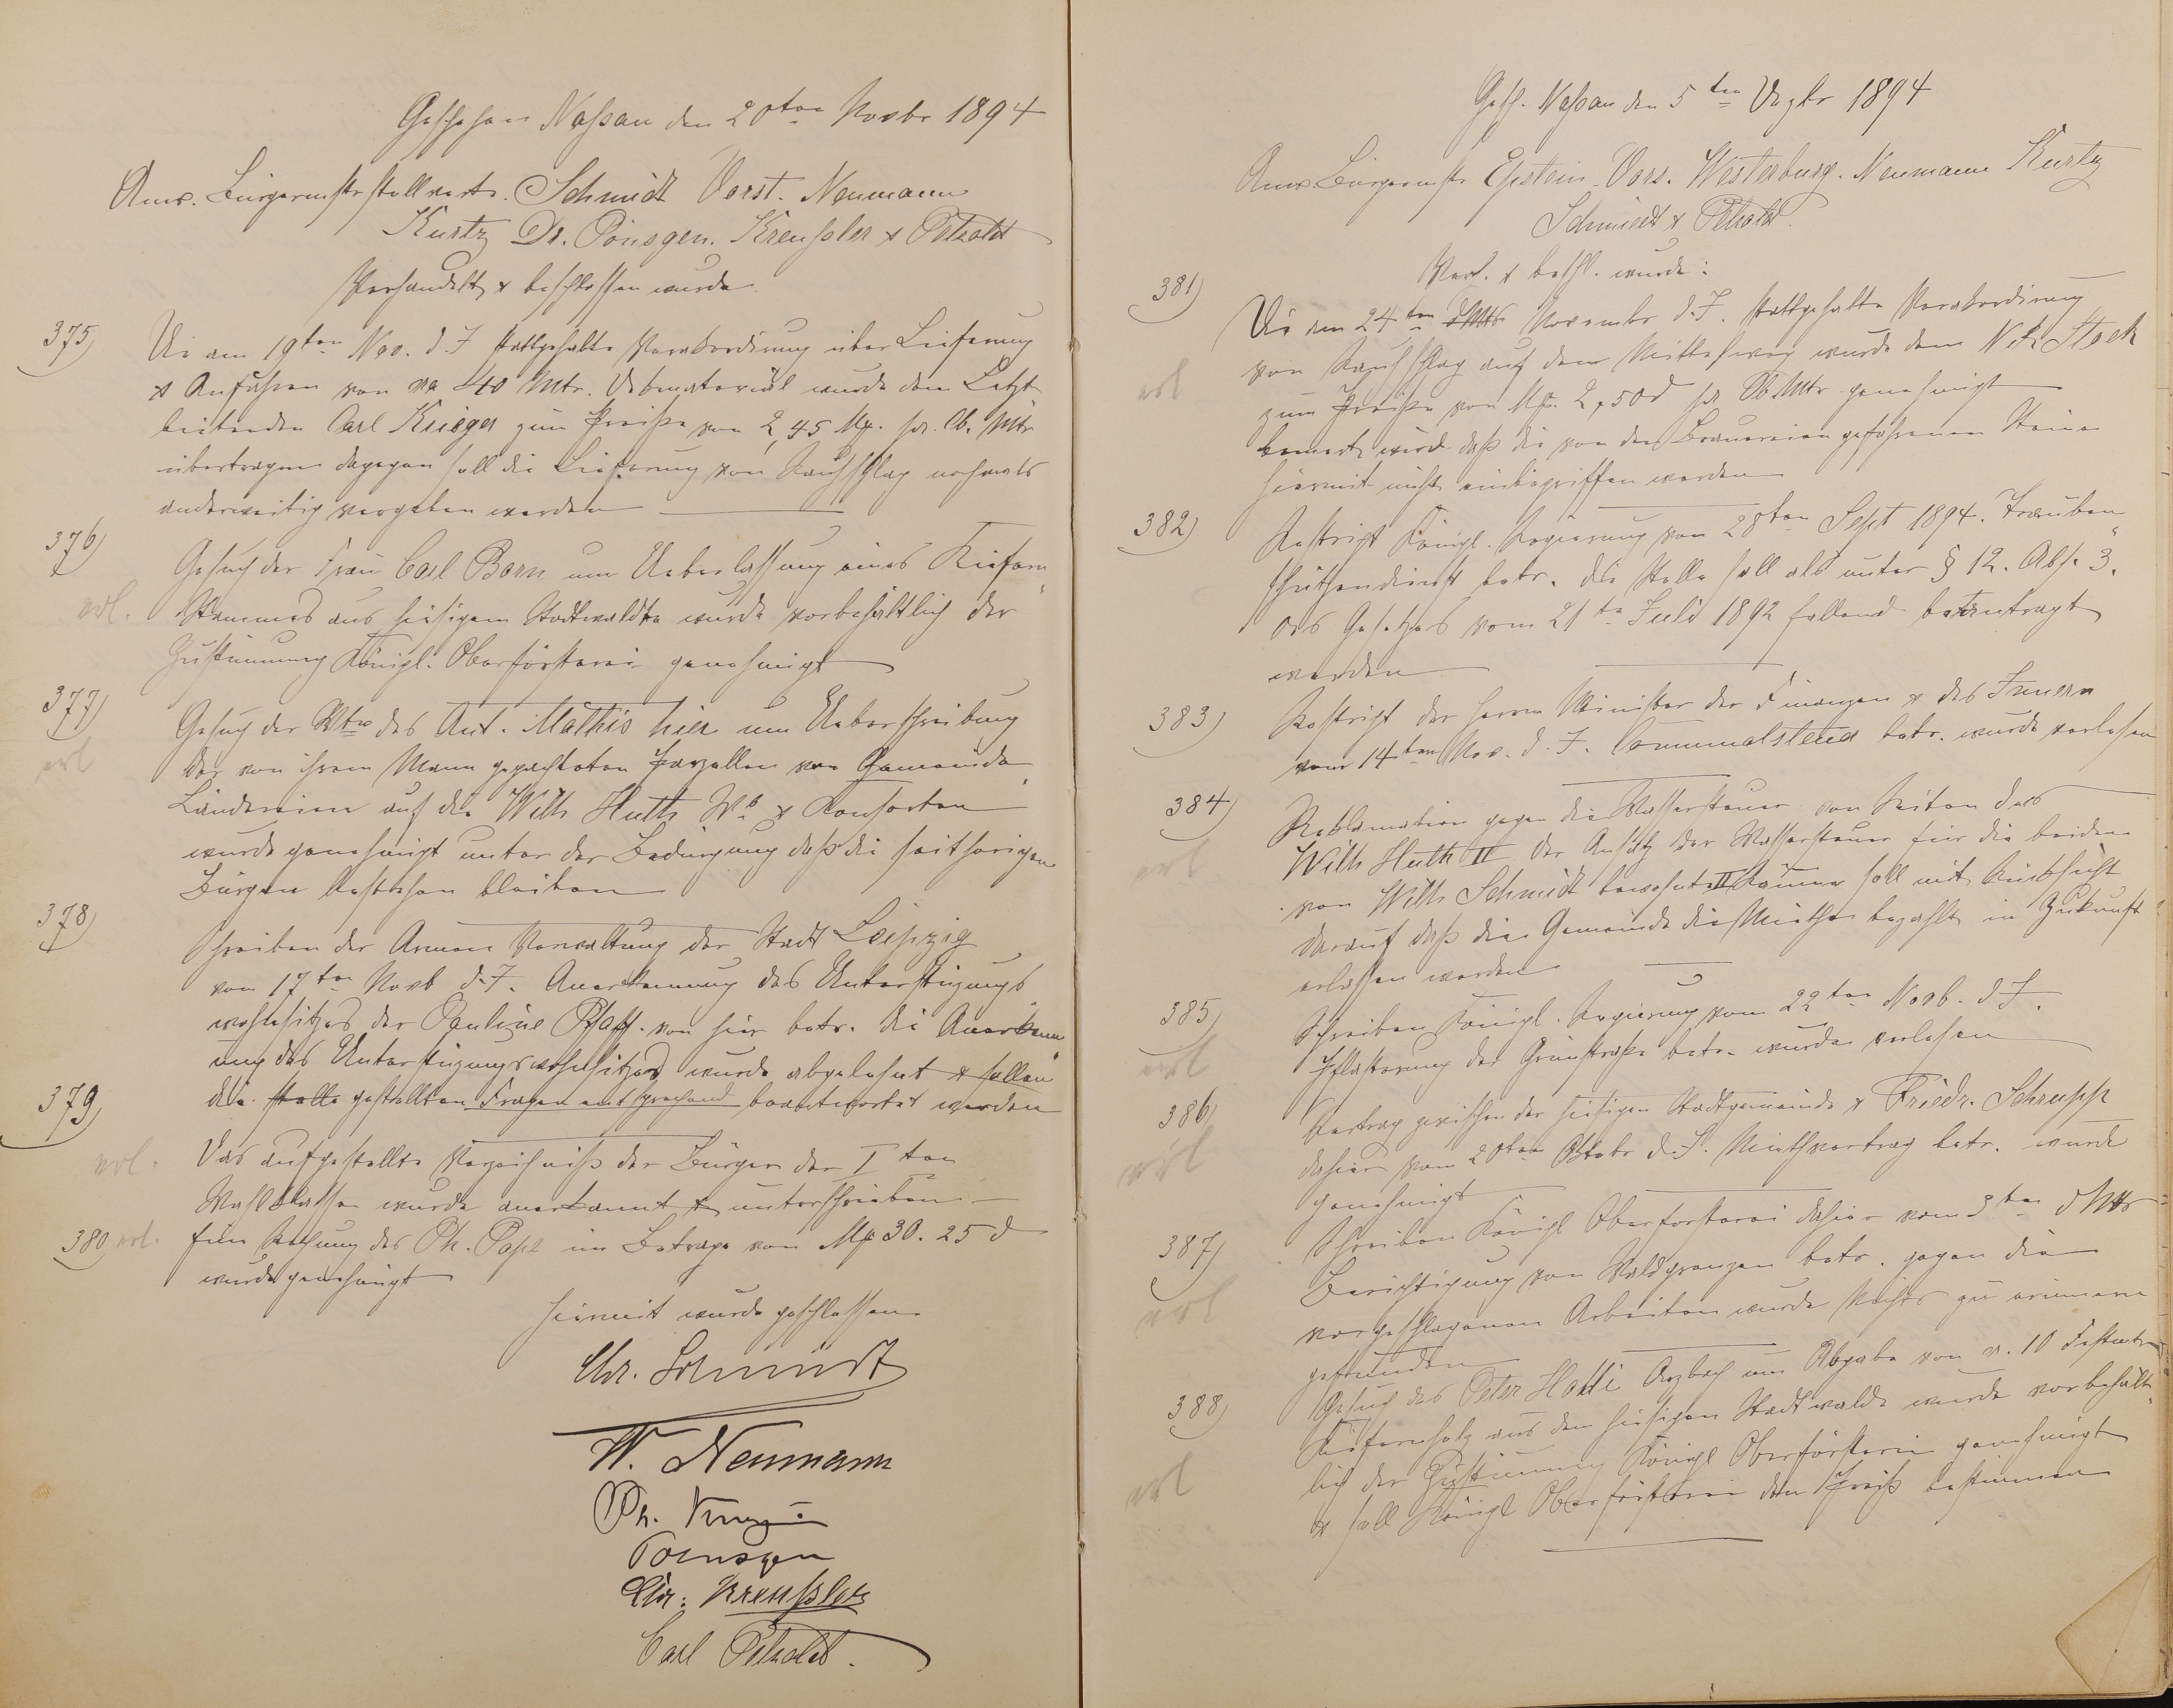 Geschehen Naßau den 20ten Novbr 1894
Anw. Bürgermstrstellvertr. Schmidt Vorst. Neumann
Kurtz Dr. Pönsgen. Kreußler & Petzold
Verhandelt & beschlossen wurde
375) Die am 19ten Nov. d. J stattgehabte Verakordirung über Lieferung
& Anfahren von ca 40 Mtr. Deckmaterial wurde dem Letzt
bietenden Carl Krieger zum Preiße von 2,45 Mk. pr. Cb. Mtr
übertragen dagegen soll die Lieferung von Rauhschlag nochmals
anderweitig vergeben werden
376) Gesuch der Frau Carl Born um Ueberlassung eines Kiefern
erl. Stammes aus hiesigem Stadtwalde wurde vorbehältlich der
Zustimmung Königl. Oberförsterei genehmigt
377) Gesuch der Wtw des Ant. Mathis hier um Ueberschreibung
erl der von ihrem Mann gepachteten Parzellen von Gemeinde
Ländereien auf die Wilh Huth Wb & Konsorten
wurde genehmigt unter der Bedingung daß die seitherigen
Bürgen bestehen bleiben
378) Schreiben der Armen Verwaltung der Stadt Leipzig
vom 17ten Novb d. J. Anerkennung des Unterstützungs
wohnsitzes der Pauline Pfaff. von hier betr. die Anerkenn
ung des Unterstützungswohnsitzes wurde abgelehnt & sollen
die stelle gestellten Fragen entsprechend beantwortet werden
379)
erl. Das aufgestellte Verzeichniß der Bürger der I ten
Wahlklasse wurde anerkannt & unterschrieben
380 erl. Eine Rechnung des Ph. Pohl im Betrage von Mk 30. 25 d
wurde genehmigt
Hiermit wurde geschlossen
Chr. Schmidt
W. Neumann
Ph.
Poensgen
Chr. Kreußler
Carl Petzold.
Gesch. Naßau den 5ten Dezbr 1894
Anw. Bürgermstr Epstein Vors. Westerburg. Neumann Kurtz
Schmidt & Petzold.
Verh. & beschl. wurde:
381) Die am 24ten dMts November d. J. stattgehabte Verakordirung
erl von Rauhschlag auf dem Mittelweg wurde dem Stock
zum Preiße von Mk. 2,50 d pr Cb Mtr genehmigt
bemerkt wird daß die von den Brauereien gefahrenen Steine
hiermit nicht einbegriffen werden
382) Reskript Königl. Regierung vom 28ten Sept 1894. Trauben
schützendienst betr. die Stelle soll als unter § 12. Abs. 3.
des Gesetzes vom 21te Juli 1892 fallend beantragt
werden
383) Reskript der Herrn Minister der Finanzen & des Innern
vom 14ten Nov. d. J. Communalsteuer betr. wurde verlesen
384) Reklamation gegen die Wassersteuer von Seiten des
erl Wilh Huth II der Ansatz der Wassersteuer für die beiden
von Wilh Schmidt bewohnte II Räume soll mit Rücksicht
darauf daß die Gemeinde die Miethe bezahlt in Zukunft
erlassen werden
385) Schreiben Königl. Regierung vom 22ten Novb. d J.
erl Pflasterung der Grünstraße betr. wurde verlesen
386) Vertrag zwischen der hiesigen Stadtgemeinde & Friedr. Schrupp
erl dahier vom 20ten Oktobr d. J. Miethvertrag betr. wurde
genehmigt
387) Schreiben Königl Oberforsterei dahier vom 3ten dMts
erl Berichtigung von Waldgrenzen betr. gegen die
vorgeschlagenen Arbeiten wurde Nichts zu erinnern
gefunden
388) Gesuch des Peter Arzbach um Abgabe von ca. 10 Festmtr
erl Kiefernholz aus dem hiesigen Stadtwalde wurde vorbehält
lich der Zustimmung Königl Oberförsterei genehmigt
& soll Königl Oberförsterei den Preiß bestimmen